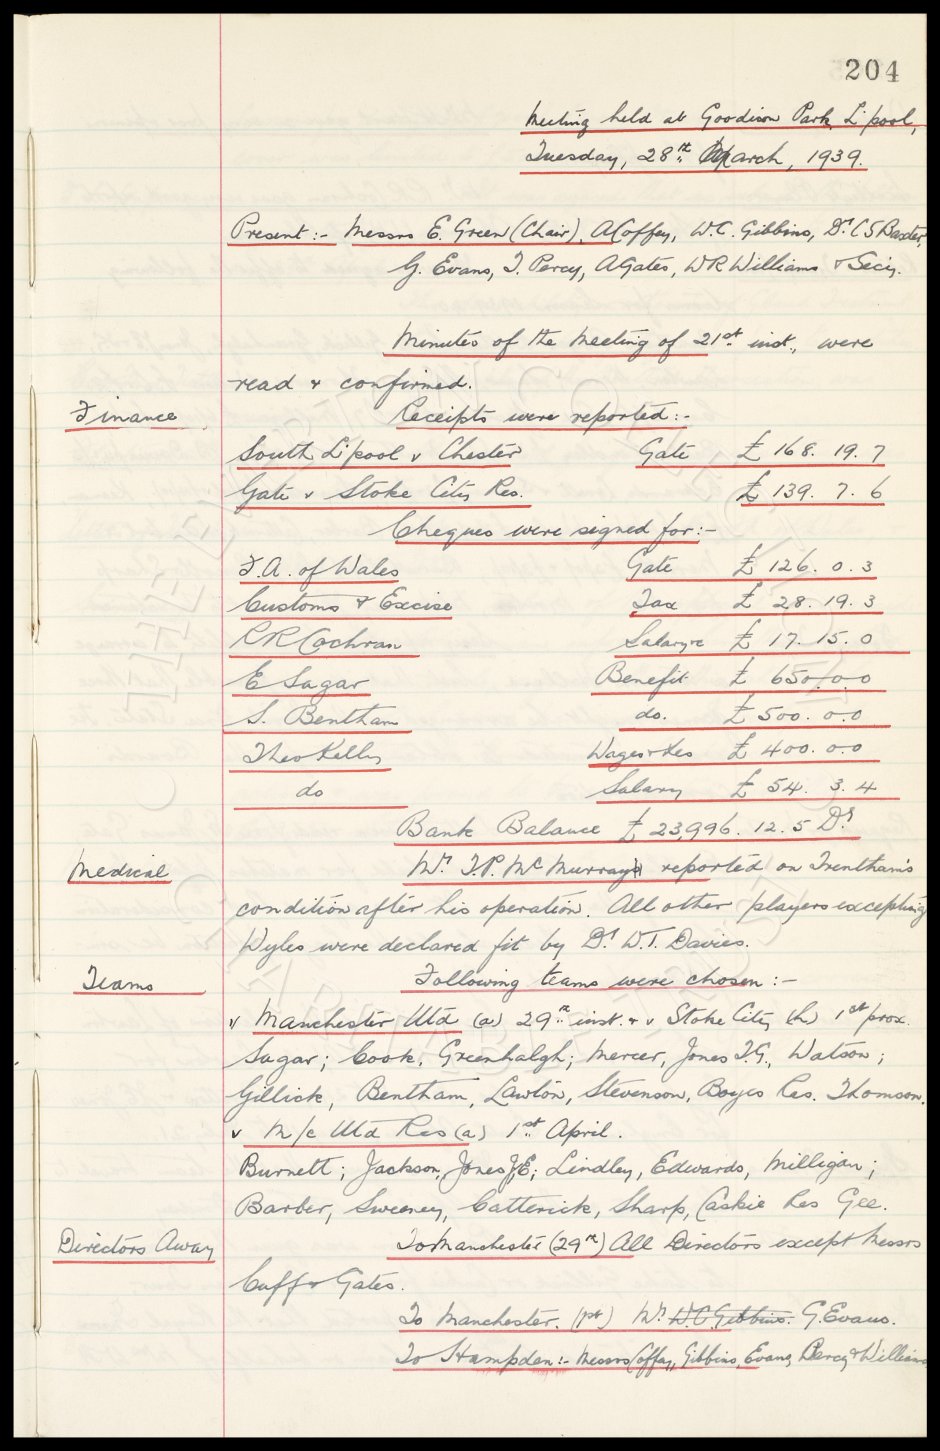 204
Meeting held at Goodison Park, L'pool,
Tuesday, 28th March, 1939.
Present:- Messrs E. Green (Chair), A Coffey, W.C. Gibbins, Dr. C S Baxter,
G. Evans, T. Percy, A Gates, W R Williams & Secy.
Minutes of the Meeting of 21st inst., were
read & confirmed.
Finance Receipts were reported:-
South L'pool v Chester Gate £ 168. 19. 7
Gate v Stoke City Res. £ 139. 7. 6
Cheques were signed for:-
F.A. of Wales Gate £ 126. 0. 3
Customs & Excise Tax £ 28. 19. 3
R R Cochran Salary £ 17. 15. 0
E Sagar Benefit £ 650. 0. 0
S. Bentham do. £ 500. 0. 0
Theo Kelly Wages £ 400. 0. 0
do Salary £ 54. 3. 4
Bank Balance £ 23,996. 12. 5 Dr
Medical Mr. T.P. McMurray reported on Trentham's
condition after his operation. All other players excepting
Wyles were declared fit by Dr W.T. Davies.
Teams Following teams were chosen:-
v Manchester Utd (a) 29th inst. & v Stoke City (h) 1st prox.
Sagar; Cook, Greenhalgh; Mercer, Jones T.G., Watson;
Gillick, Bentham, Lawton, Stevenson, Boyes Res. Thomson.
v M/c Utd Res (a) 1st April.
Burnett; Jackson, Jones J.E; Lindley, Edwards, Milligan;
Barber, Sweeney, Catterick, Sharp, Caskie Res Gee.
Directors Away To Manchester (29th) All Directors except Messrs
Cuff & Gates.
To Manchester. (1st) Mr. W.C. Gibbins. G. Evans.
To Hampden:- Messrs Coffey, Gibbins, Evans, Percy & Williams